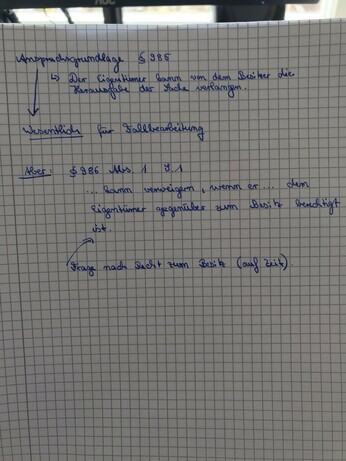 Anspruchsgrundlage § 985
↳ Der Eigentümer kann von dem Besitzer die
Herausgabe der Sache verlangen.
Wesentlich für Fallbearbeitung
Aber: § 986 Abs. 1 S. 1
... kann verweigern, wenn er ... dem
Eigentümer gegenüber zum Besitz berechtigt
ist.
Frage nach Recht zum Besitz (auf Zeit)